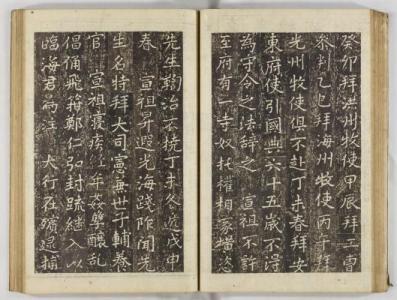 癸卯拜洪州牧使甲辰拜工曹
參判乙巳拜海州牧使丙午拜
光州牧使俱不赴丁未春拜安
東府使引國典六十五歲不得
為守令之法辭之 宣祖不許
至府有一寺奴托權相家猾恣
先生鞫治不撓丁未冬遞戊申
春 宣祖昇遐光海踐阼聞先
生名特拜大司憲兼世子輔養
官 宣祖寢疾年奸孽釀亂
倡俑飛鄭仁弘封疏繼入以
臨海君為注 大行在殯逮捕